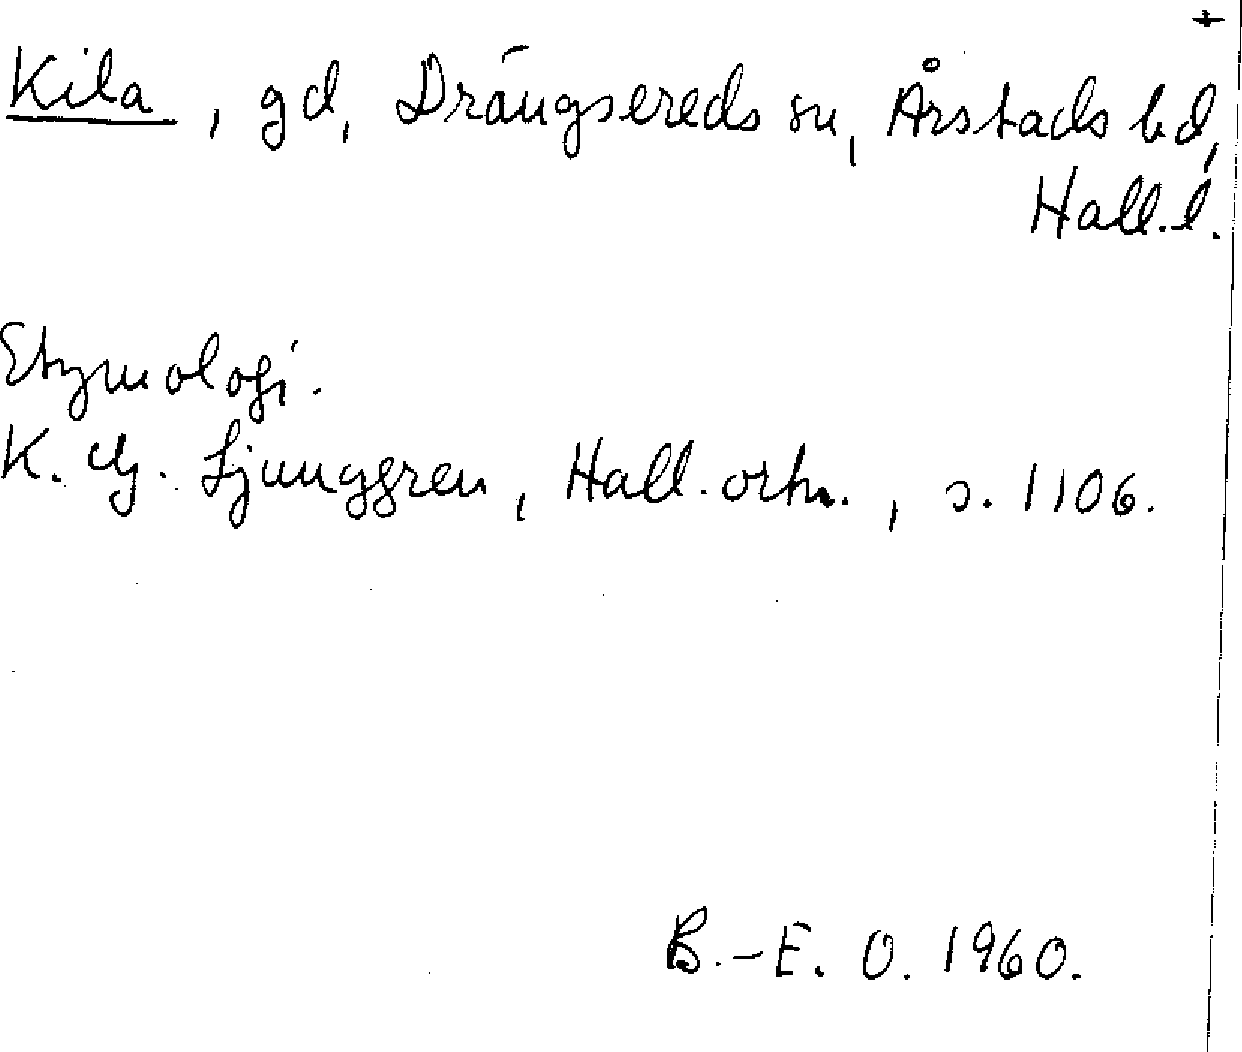 +
Kila, gd, Drängsereds sn, Årstads hd,
Hall. l.
Etymologi.
K. G. Ljunggren, Hall. ortn., s. 1106.
B.-E. O. 1960.